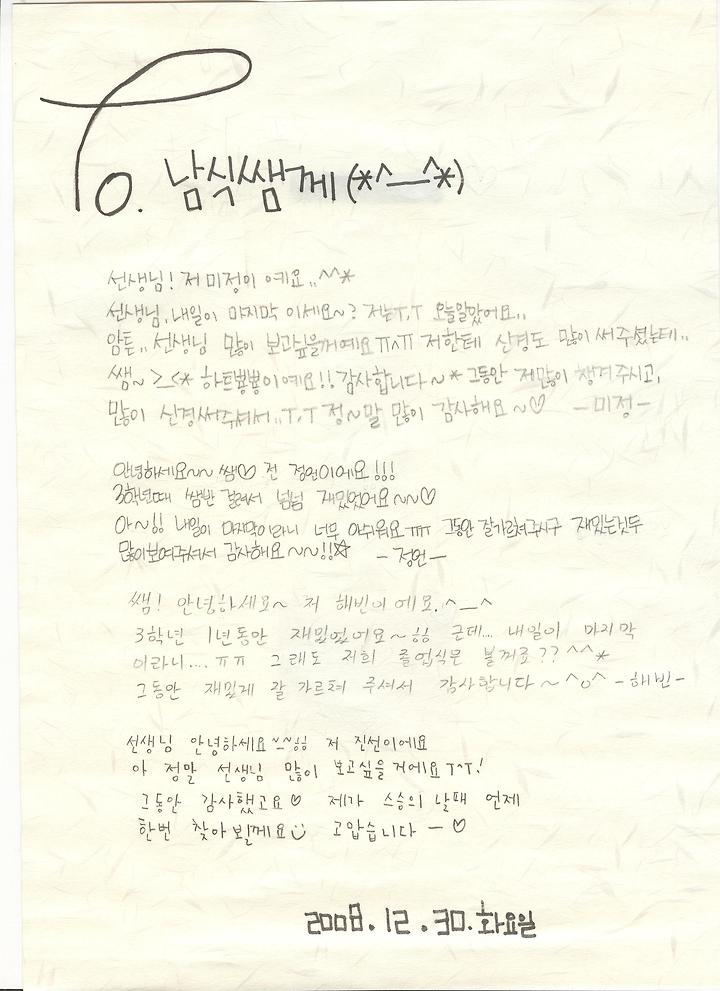 To. 남식쌤께 (*^__^*)
선생님! 저 미정이 예요..^^*
선생님, 내일이 마지막 이세요~? 저는T.T 오늘알았어요..
암튼.. 선생님 많이 보고싶을꺼예요ㅠ^ㅠ 저한테 신경도 많이 써주셨는데..
쌤~ >_<* 하트뿅뿅이예요!! 감사합니다~* 그동안 저많이 챙겨주시고,
많이 신경써주셔서..T.T 정~말 많이 감사해요~♡ -미정-
안녕하세요~~ 쌤♡ 전 정언이에요!!!
3학년때 쌤반 걸려서 넘넘 재밌었어요~~♡
아~!! 내일이 마지막이라니 너무 아쉬워요ㅠㅠ 그동안 잘가르쳐주시구 재밌는것두
많이보여주셔서 감사해요~~!!☆ -정언-
쌤! 안녕하세요~ 저 해빈이에요.^_^
3학년 1년동안 재밌었어요~!! 근데... 내일이 마지막
이라니....ㅠㅠ 그래도 저희 졸업식은 볼꺼죠?? ^^*
그동안 재밌게 잘 가르쳐 주셔서 감사합니다~^o^ -해빈-
선생님 안녕하세요~_~!! 저 진선이에요
아 정말 선생님 많이 보고싶을 거에요T^T!
그동안 감사했고요♡ 제가 스승의 날때 언제
한번 찾아뵐께요 고맙습니다 -♡
2008.12.30.화요일